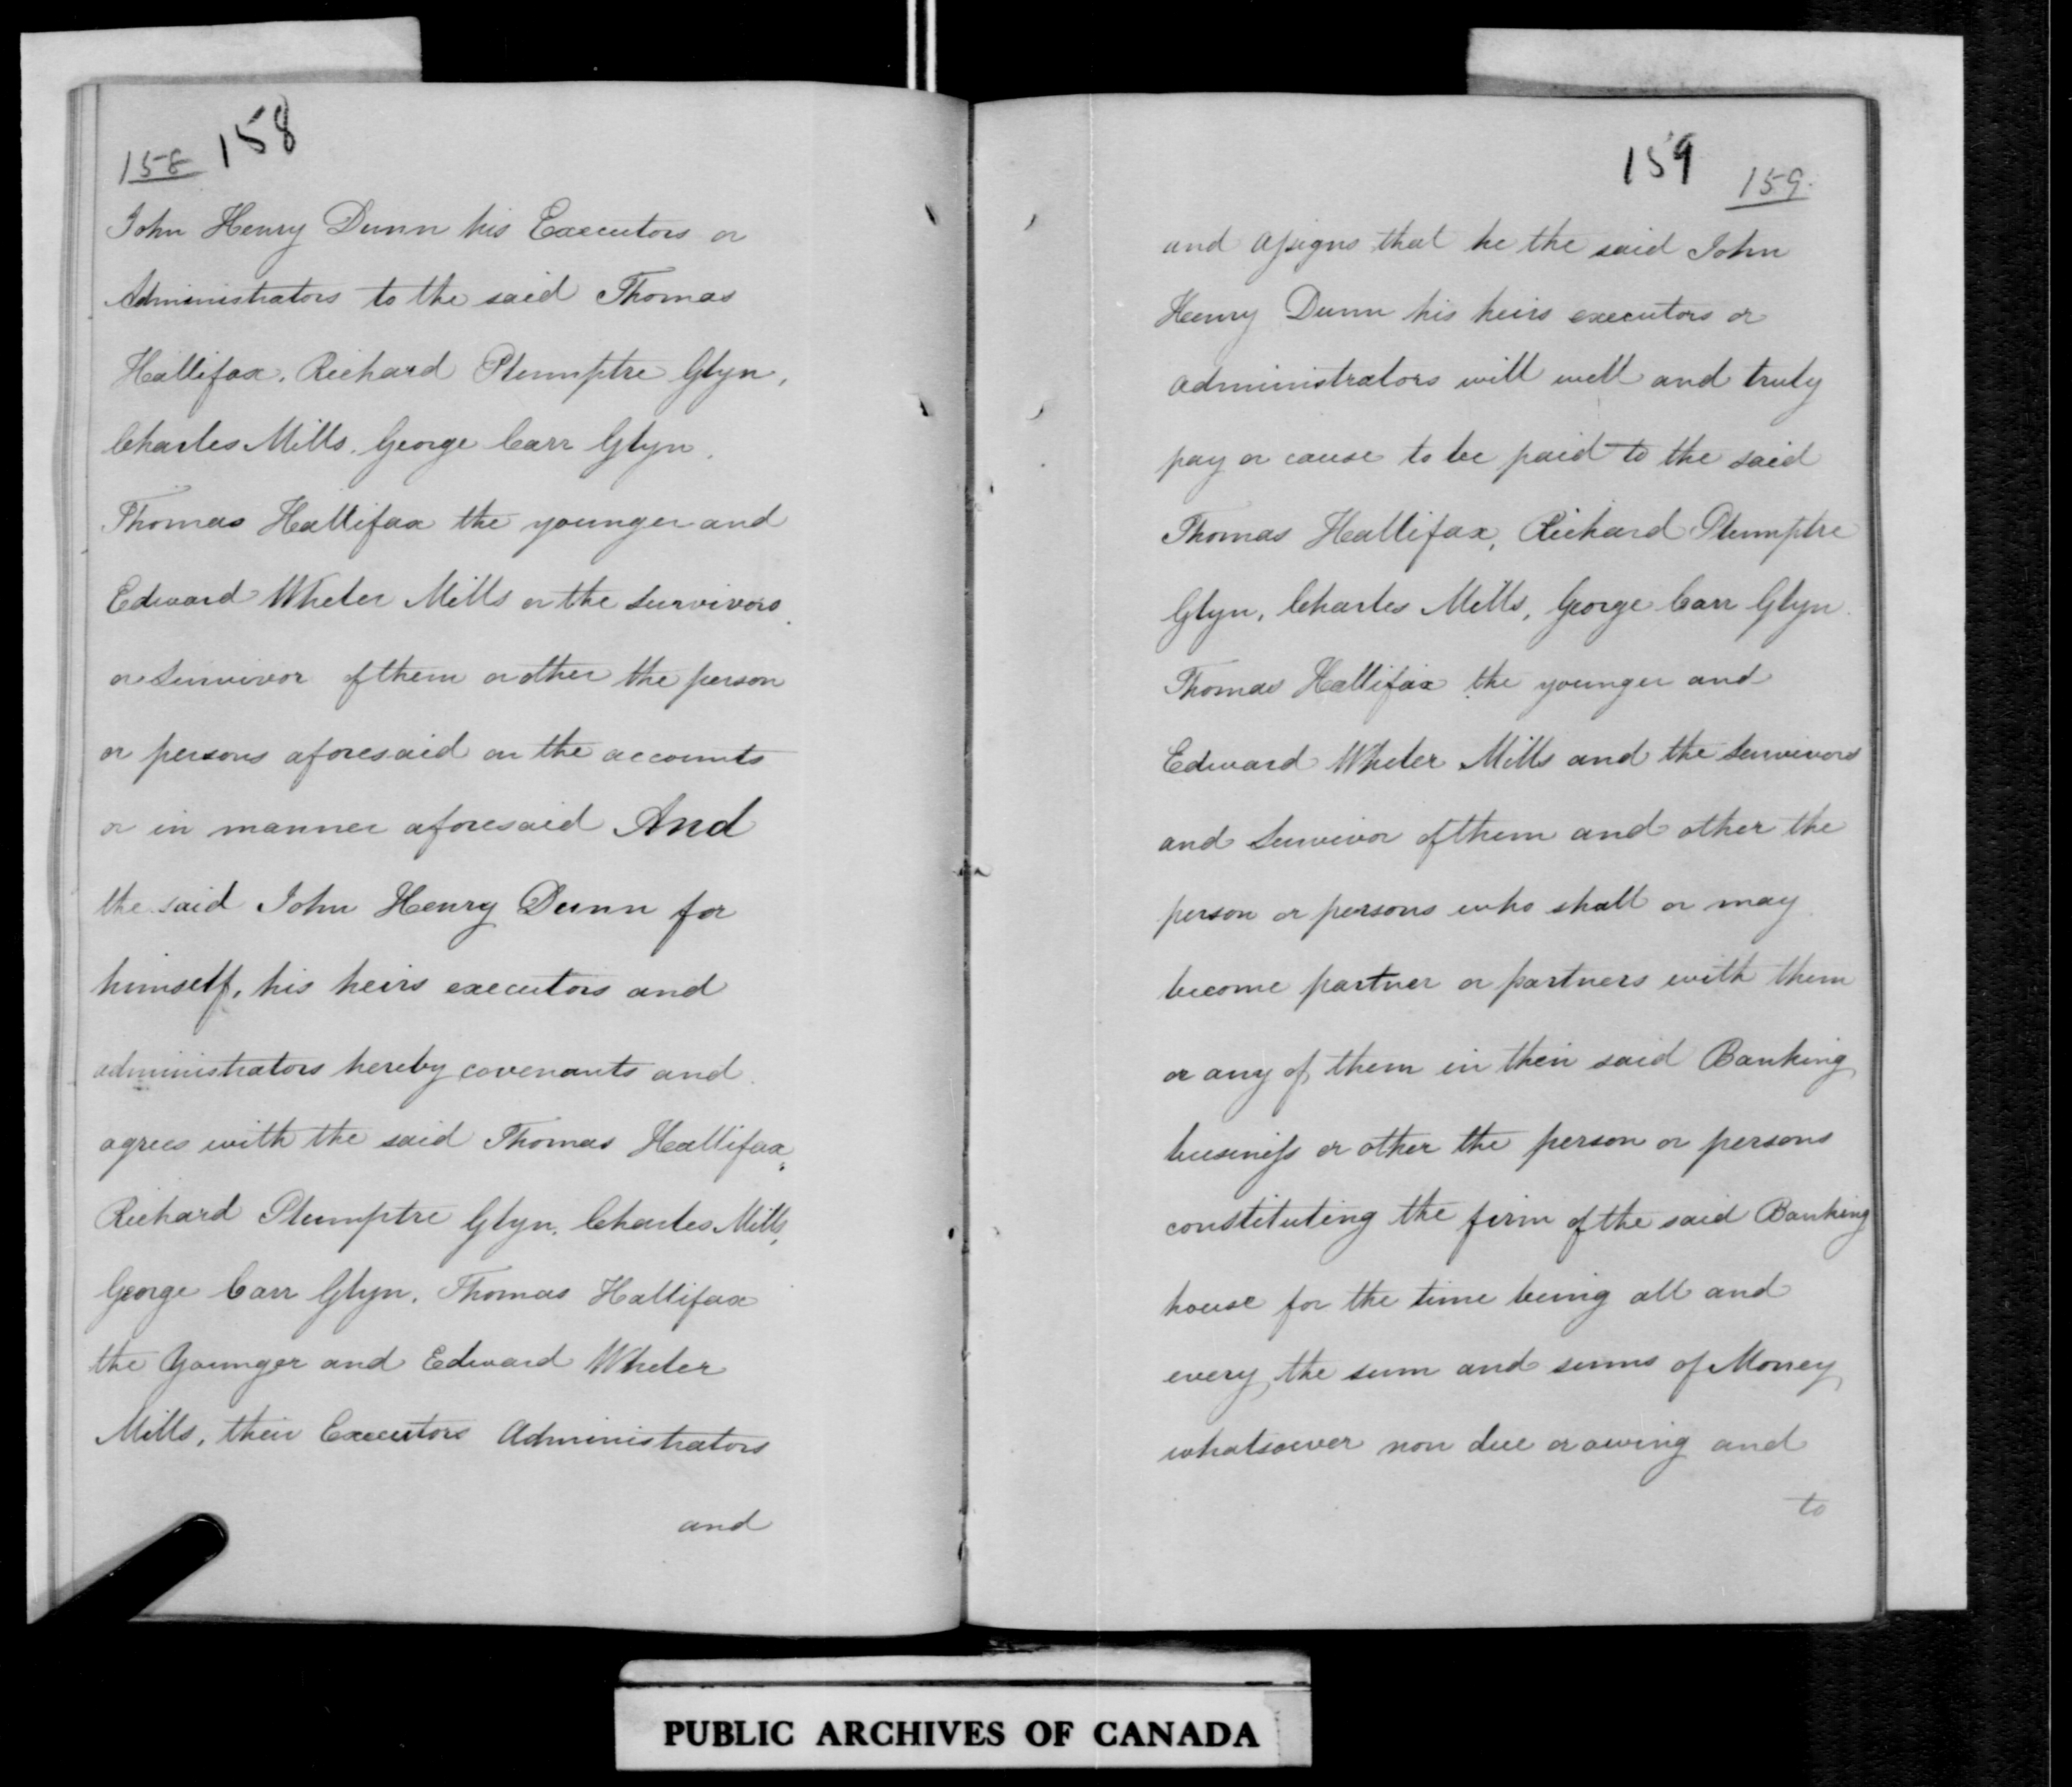 158 158
John Henry Dunn his Executors or
Administrators to the said Thomas
Hallifax, Richard Plumptre Glyn,
Charles Mills, George Carr Glyn,
Thomas Hallifax the younger and
Edward Wheler Mills or the Survivors
or Survivor of them or other the person
or persons aforesaid on the accounts
or in manner aforesaid And
the said John Henry Dunn for
himself, his heirs executors and
administrators hereby covenants and
agrees with the said Thomas Hallifax,
Richard Plumptre Glyn, Charles Mills,
George Carr Glyn, Thomas Hallifax
the Younger and Edward Wheler
Mills, their Executors Administrators
and
159 159.
and assigns that he the said John
Henry Dunn his heirs executors or
administrators will well and truly
pay or cause to be paid to the said
Thomas Hallifax, Richard Plumptre
Glyn, Charles Mills, George Carr Glyn
Thomas Hallifax the younger and
Edward Wheler Mills and the Survivors
and Survivor of them and other the
person or persons who shall or may
become partner or partners with them
or any of them in their said Banking
business or other the person or persons
constituting the firm of the said Banking
house for the time being all and
every the sum and sums of Money
whatsoever now due or owing and
to
PUBLIC ARCHIVES OF CANADA